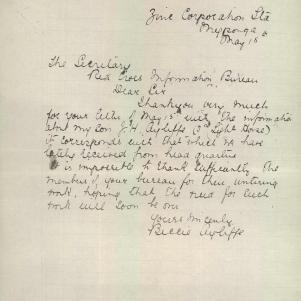 Zinc Corporation Sta
Myponga
May 18
The Secretary
Red Cross Information Bureau
Dear Sir
Thankyou very much
for your letter of May 15 with the information
abt my son J.H. Ayliffe (3rd Light Horse)
it corresponds with that which we have
lately received from head quarters
It is impossible to thank sufficently the
members of your bureau for their untiring
work, hoping that the need for such
work will soon be over
Yours sincerely
Ayliffe